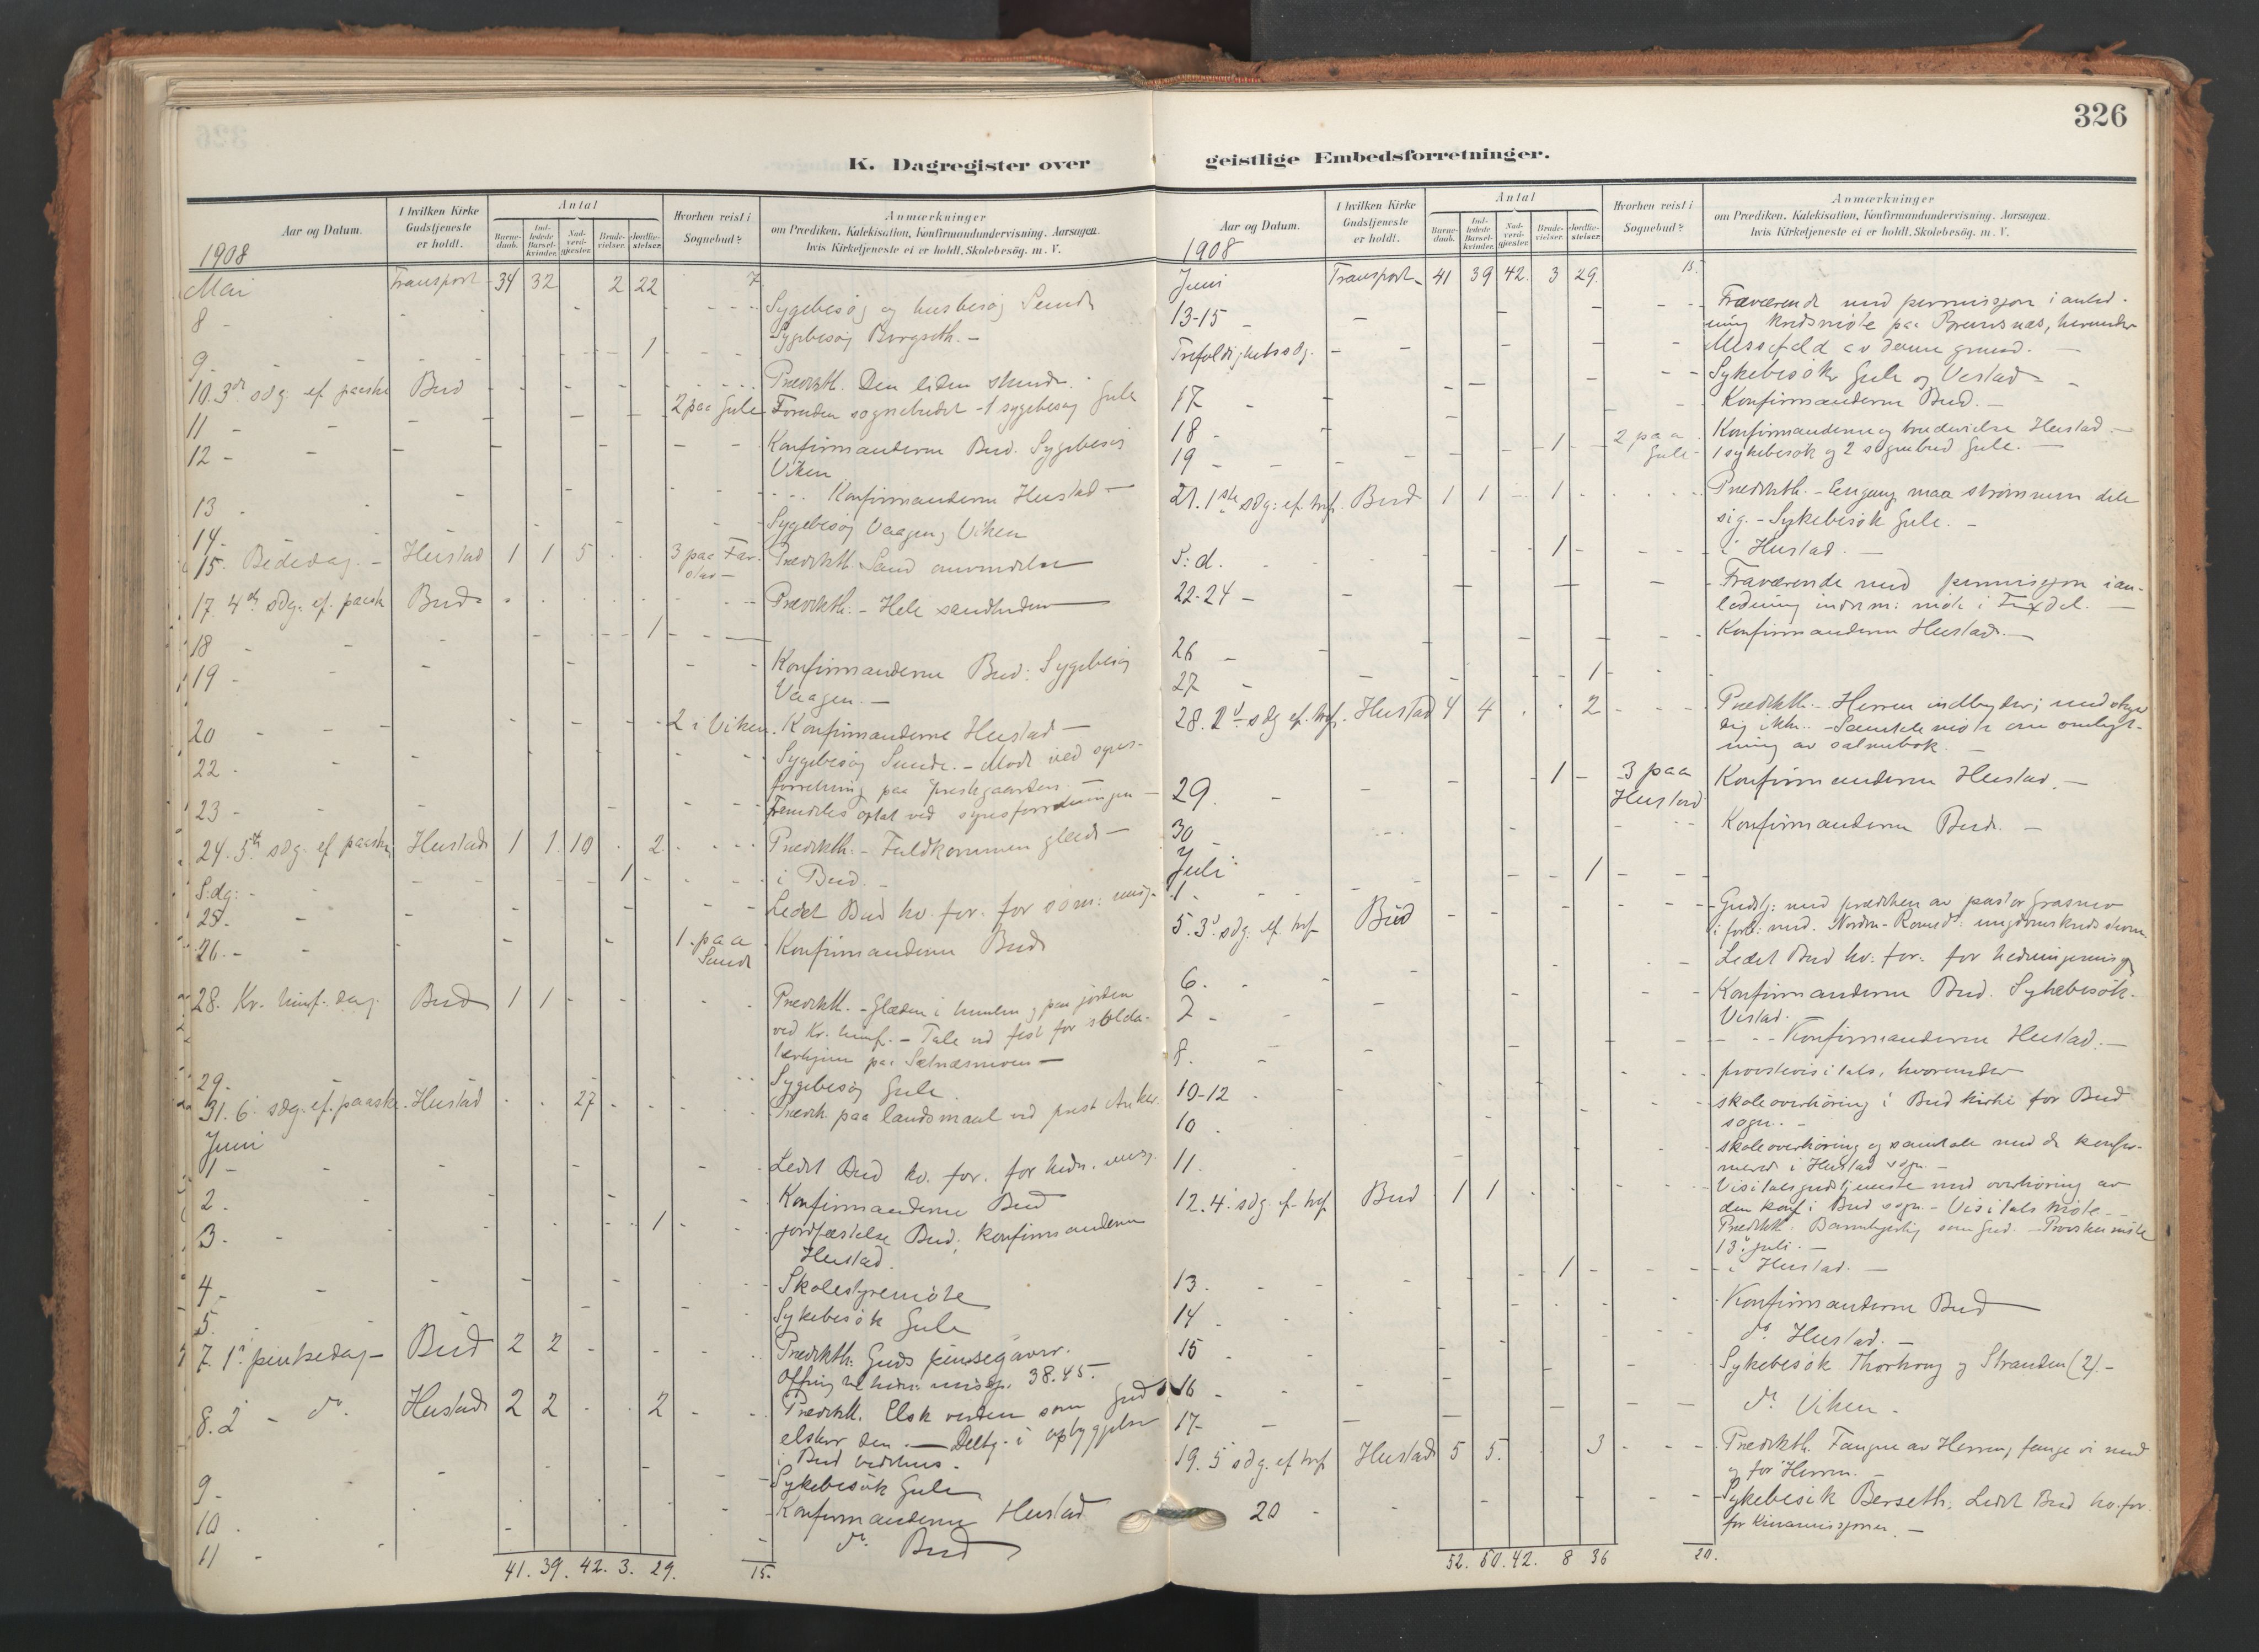 326
K. Dagregister over
Aar og Datum. I hvilken Kirke Gudstjeneste er holdt. Antal Hvorhen reist i Sognebud? Anmærkninger
Barnedaab. Indledede Barselkvinder. Nadverdgjester. Brudevielser. Jordfæstelser.
om Prædiken, Katekisation, Konfirmandundervisning. Aarsagen, hvis Kirketjeneste ei er holdt. Skolebesög. m. V.
1908
Mai Transport 34 32 2 22 7
8 - Sygebesøg og husbesøg Sunde
Sygebesøg Bergseth. -
9 - 1
10. 3de sdg. ef. paaske Bud Prædikth. Den liden stund.
11 - 2 paa Gule Foruden sognebudet - 1 sygebesøg Gule
12 - Konfirmanderne Bud. Sygebesøg
Viken
13 - Konfirmanderne Hustad -
14 - Sygebesøg Vaagen, Viken
15. Bededag - Hustad 1 1 5 3 paa Farstad - Prædikth.
17. 4de sdg. ef. paaske Bud Prædikth. - Hele sandheden
18 - 1
19 - Konfirmanderne Bud. Sygebesøg
Vaagen. -
20 - 2 i Viken. Konfirmanderne Hustad -
22 - Sygebesøg Sunde. - Møde ved synsforretning paa prestegaarden. -
23 - Fremdeles optat ved synsforretningen -
24. 5te sdg. ef. paaske Hustad 1 1 10 2 Prædikth. - Fuldkommen glæde -
S. dg: - 1 i Bud. -
25. - Ledet Bud kv. for. for
26. - 1 paa Sunde Konfirmanderne Bud
28. Kr. himf. dag Bud 1 1 Prædikth. - Glæden i himlen og paa jorden
ved Kr. himf. - Tale ved fest for
29. Sygebesøg Gule.
31. 6. sdg. ef. paaske. Hustad 27 Prædik. paa landsmaal ved prest Anker.
Juni
1 - Ledet Bud kv. for. for hedn. miss.
2. Konfirmanderne Bud
3. - 1 jordfæstelse Bud; konfirmanderne
Hustad.
4 - Skolestyremöte
5. Sykebesök Gule
7. 1. pinsedag - Bud 2 2 Prædikth: Guds pinsegaver.
Offring til hedn. missj. 38.45.
8. 2 - do. Hustad 2 2 2 Prædikth. Elsk verden som Gud
elsker den. - Deltg. i opbyggelse
i Bud bedehus.
9 - Sykebesök Gule
10 . Konfirmanderne Hustad
11 - do. Bud
41. 39. 42. 3. 29. 15.
geistlige Embedsforretninger.
Aar og Datum. I hvilken Kirke Gudstjeneste er holdt. Antal Hvorhen reist i Sognebud? Anmærkninger
Barnedaab. Indledede Barselkvinder. Nadverdgjester. Brudevielser. Jordfæstelser.
om Prædiken. Katekisation, Konfirmandundervisning. Aarsagen, hvis Kirketjeneste ei er holdt. Skolebesög. m. V.
1908
Juni Transport 41 39 42. 3 29. 15.
13-15 - Fraværende med permissjon i anledning kredsmöte paa Bremsnæs, herunder
Trefoldighetssdg. - Messefald av denne grund. -
17 - Sykebesök Gule og Vestad -
18 - Konfirmanderne Bud. -
19 - 1 2 paa Gule - Konfirmanderne og brudevielse Hustad -
1 sykebesök og 2 sognebud Gule. -
21. 1ste sdg: ef. tref. Bud 1 1 1 Prædikth. - Engang maa strømmen dele
sig. - Sykebesök Gule. -
S: d. 1 i Hustad. -
22-24 - Fraværende med permissjon i anledning indrem: möte i -
26 - Konfirmanderne Hustad. -
27 - 1
28. 2d. sdg ef. tref. Hustad 4 4 2 Prædikth. - Herren indbyder; undskyld
dig ikke. - Samtalemöte om ombytning av salmebok. -
29. - 1 3 paa Hustad Konfirmanderne Hustad. -
30 - Konfirmanderne Bud. -
Juli
1 - 1
5. 3d. sdg. ef. tref. Bud Gudstj: med prædiken av pastor
i forb: med Nordm.-Romsd:
6. - Ledet Bud kv. for. for hedningemisj.
7 - Konfirmanderne Bud. Sykebesök.
Vestad.
8. - Konfirmanderne Hustad. -
10-12 - provstevisitats, hvorunder
10 . skoleoverhöring i Bud kirke for Bud
sogn. -
11. skoleoverhöring og samtale med de konfirmerede i Hustad sogn. -
12. 4. sdg. ef. tref. Bud 1 1 Visitatsgudstjeneste med overhöring av
den konf. i Bud sogn. - Visitatsmöte. -
Prædikth. Barmhjertig som Gud. -
13. juli. -
13. - 1 i Hustad. -
14 - Konfirmanderne Bud
15 - do. Hustad. -
16 - Sykebesök Thorhong og Stranden (2). -
17- do. Viken -
19. 5 sdg. ef. tref. Hustad 5 5. 3 Prædikth. Fangne av Herren, fange vi med
og for Herren. -
20 - Sykebesök Berseth. Ledet Bud kv. for.
for Kinamissjonen. -
52. 50. 42. 8 36 20.